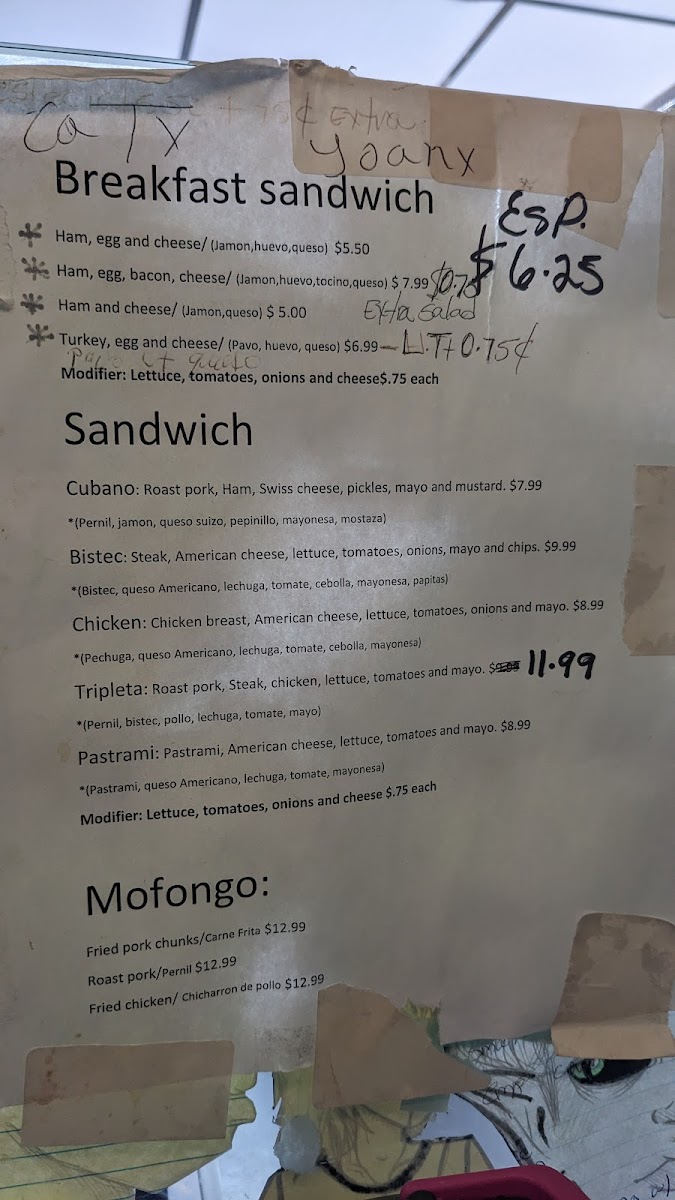 CaTy
¢ Extra
Yoanx
Breakfast sandwich
ESP.
$6.25
Ham, egg and cheese/ (Jamon,huevo,queso) $5.50
Ham, egg, bacon, cheese/ (Jamon,huevo,tocino,queso) $ 7.99 $0.75
Ham and cheese/ (Jamon,queso) $ 5.00 Extra
Turkey, egg and cheese/ (Pavo, huevo, queso) $6.99 - L.T+0.75¢
queso
Modifier: Lettuce, tomatoes, onions and cheese$.75 each
Sandwich
Cubano: Roast pork, Ham, Swiss cheese, pickles, mayo and mustard. $7.99
*(Pernil, jamon, queso suizo, pepinillo, mayonesa, mostaza)
Bistec: Steak, American cheese, lettuce, tomatoes, onions, mayo and chips. $9.99
*(Bistec, queso Americano, lechuga, tomate, cebolla, mayonesa, papitas)
Chicken: Chicken breast, American cheese, lettuce, tomatoes, onions and mayo. $8.99
*(Pechuga, queso Americano, lechuga, tomate, cebolla, mayonesa)
Tripleta: Roast pork, Steak, chicken, lettuce, tomatoes and mayo. $ 11.99
*(Pernil, bistec, pollo, lechuga, tomate, mayo)
Pastrami: Pastrami, American cheese, lettuce, tomatoes and mayo. $8.99
*(Pastrami, queso Americano, lechuga, tomate, mayonesa)
Modifier: Lettuce, tomatoes, onions and cheese $.75 each
Mofongo:
Fried pork chunks/Carne Frita $12.99
Roast pork/Pernil $12.99
Fried chicken/ Chicharron de pollo $12.99